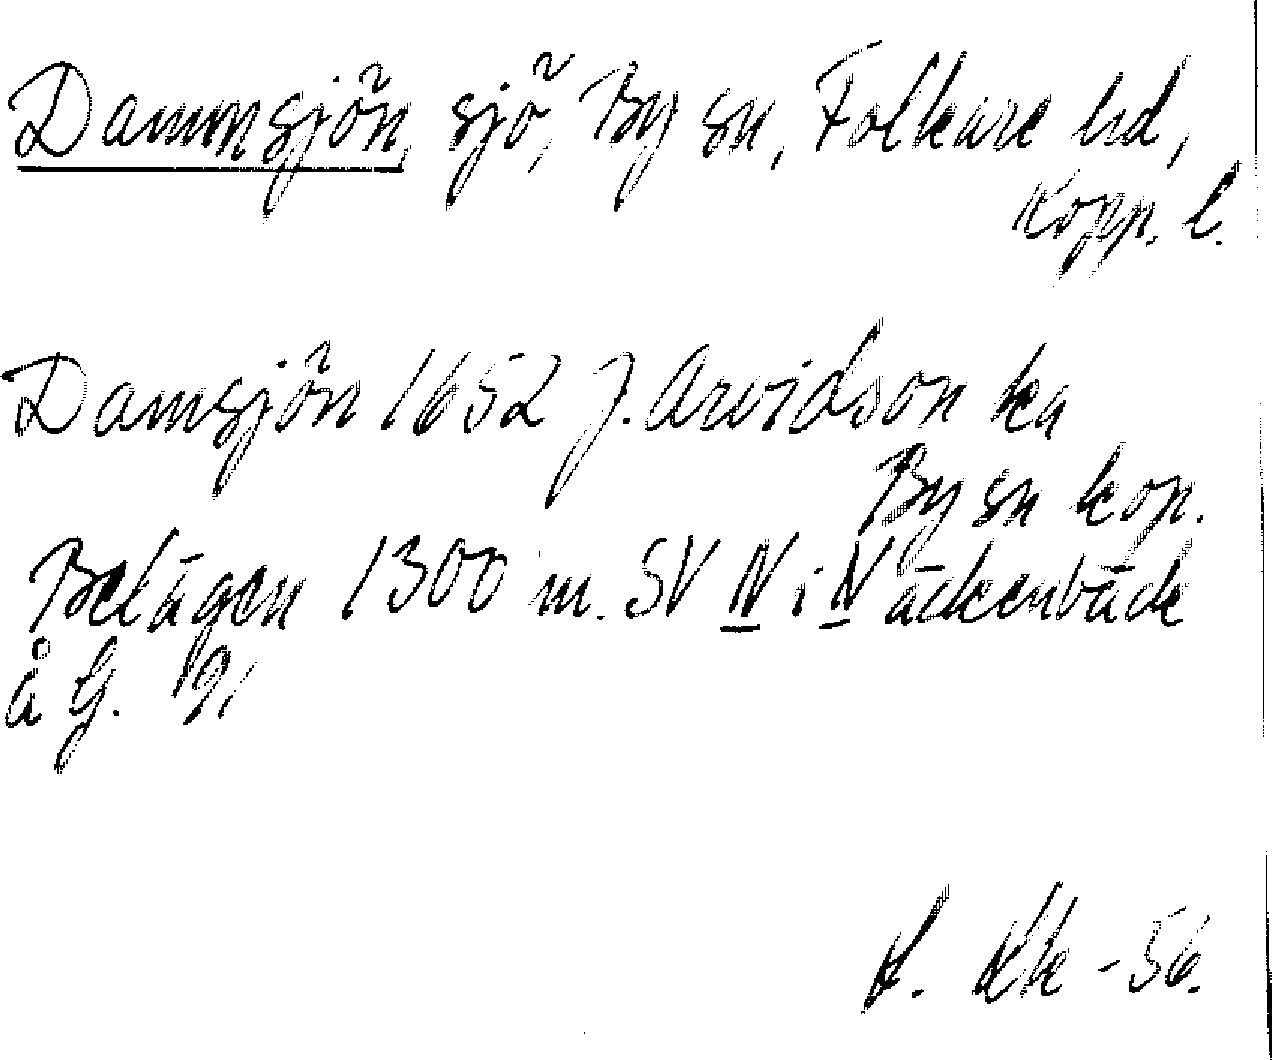 Dammsjön, sjö, By sn, Folkare hd,
Kopp. l.
Damsjön 1652 J. Arvidson ka
By sn kop.
Belägen 1300 m. SV N i Näckenbäck
å G. 91
K. Kk -56.